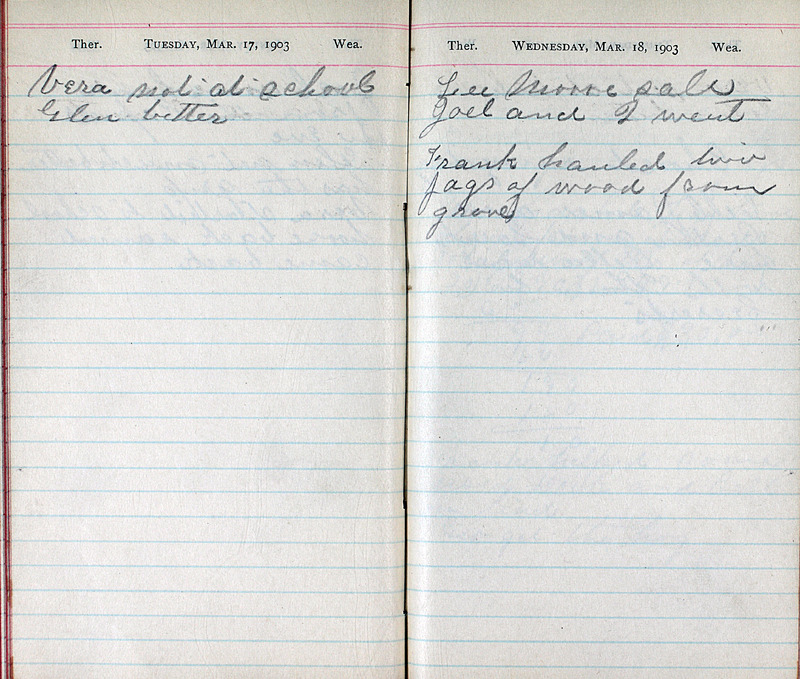 Ther. Tuesday, Mar. 17, 1903 Wea.
Vera not at school
Glen better
Ther. Wednesday, Mar. 18, 1903 Wea.
Lee sale
Joel and I went
Frank hauled two
jags of wood from
grove